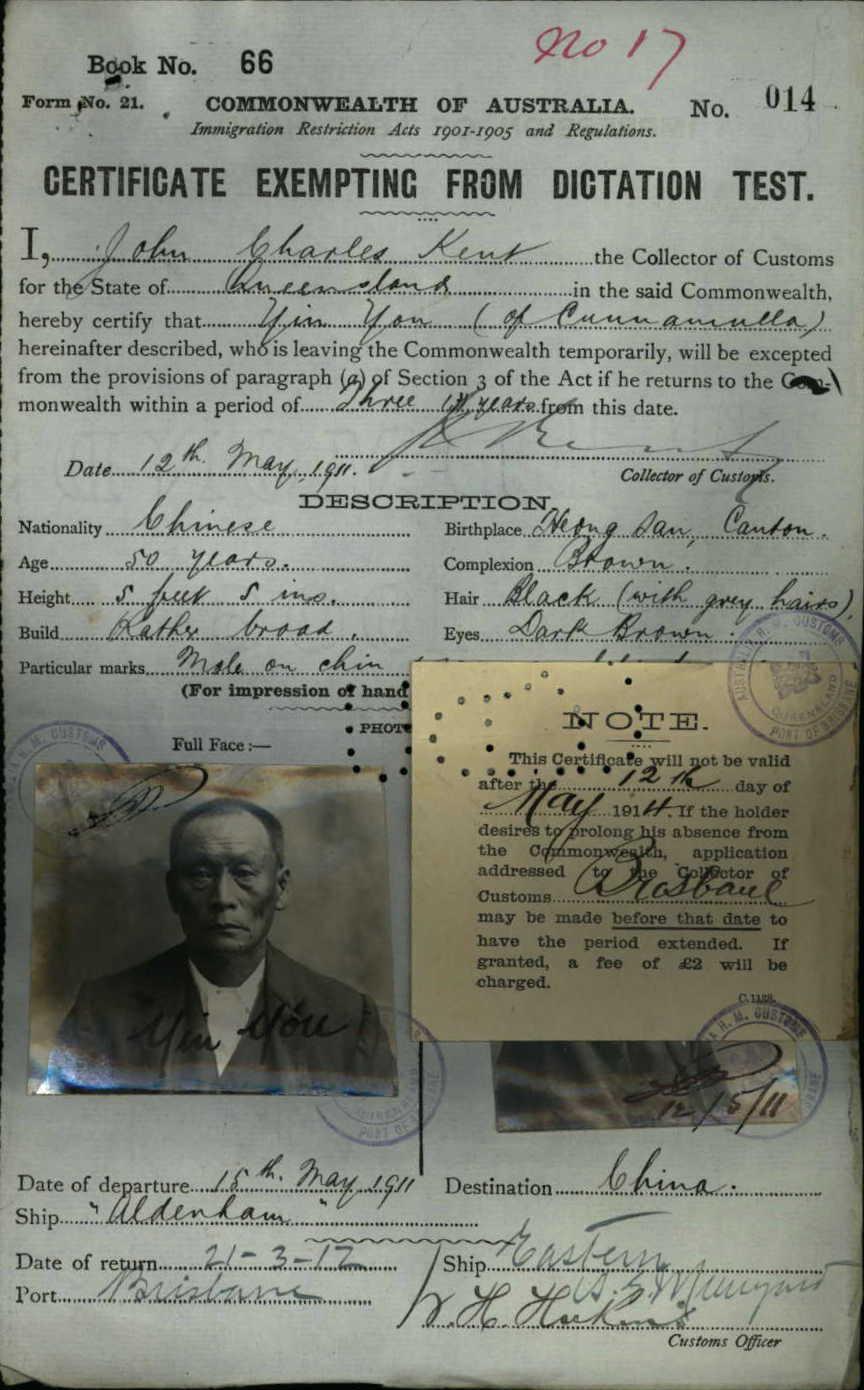 No 17
Book No. 66
Form No. 21. COMMONWEALTH OF AUSTRALIA. No. 014
Immigration Restriction Acts 1901-1905 and Regulations.
CERTIFICATE EXEMPTING FROM DICTATION TEST.
I, John Charles Kent the Collector of Customs
for the State of Queensland in the said Commonwealth,
hereby certify that Yin You (of Cunnamulla)
hereinafter described, who is leaving the Commonwealth temporarily, will be excepted
from the provisions of paragraph (a) of Section 3 of the Act if he returns to the Com-
monwealth within a period of Three years from this date.
Date 12th May, 1911.
Collector of Customs.
DESCRIPTION
Nationality Chinese
Birthplace Heong San, Canton.
Age 50 years.
Complexion Brown.
Height 5 feet 5 ins.
Hair Black (with grey hairs)
Build Rather broad.
Eyes Dark Brown.
Particular marks Mole on chin
(For impression of hand
PHOT
Full Face:—
NOTE.
This Certificate will not be valid
after the 12th day of
May 1914. If the holder
desires to prolong his absence from
the Commonwealth, application
addressed to the Collector of
Customs Brisbane
may be made before that date to
have the period extended. If
granted, a fee of £2 will be
charged.
Yin You
H. M. CUSTOMS
QUEENSLAND
PORT OF BRISBANE
12/5/11
Date of departure 15th May 1911
Destination China.
Ship "Aldenham"
Date of return 21-3-12
Ship Eastern
Port Brisbane
Customs Officer